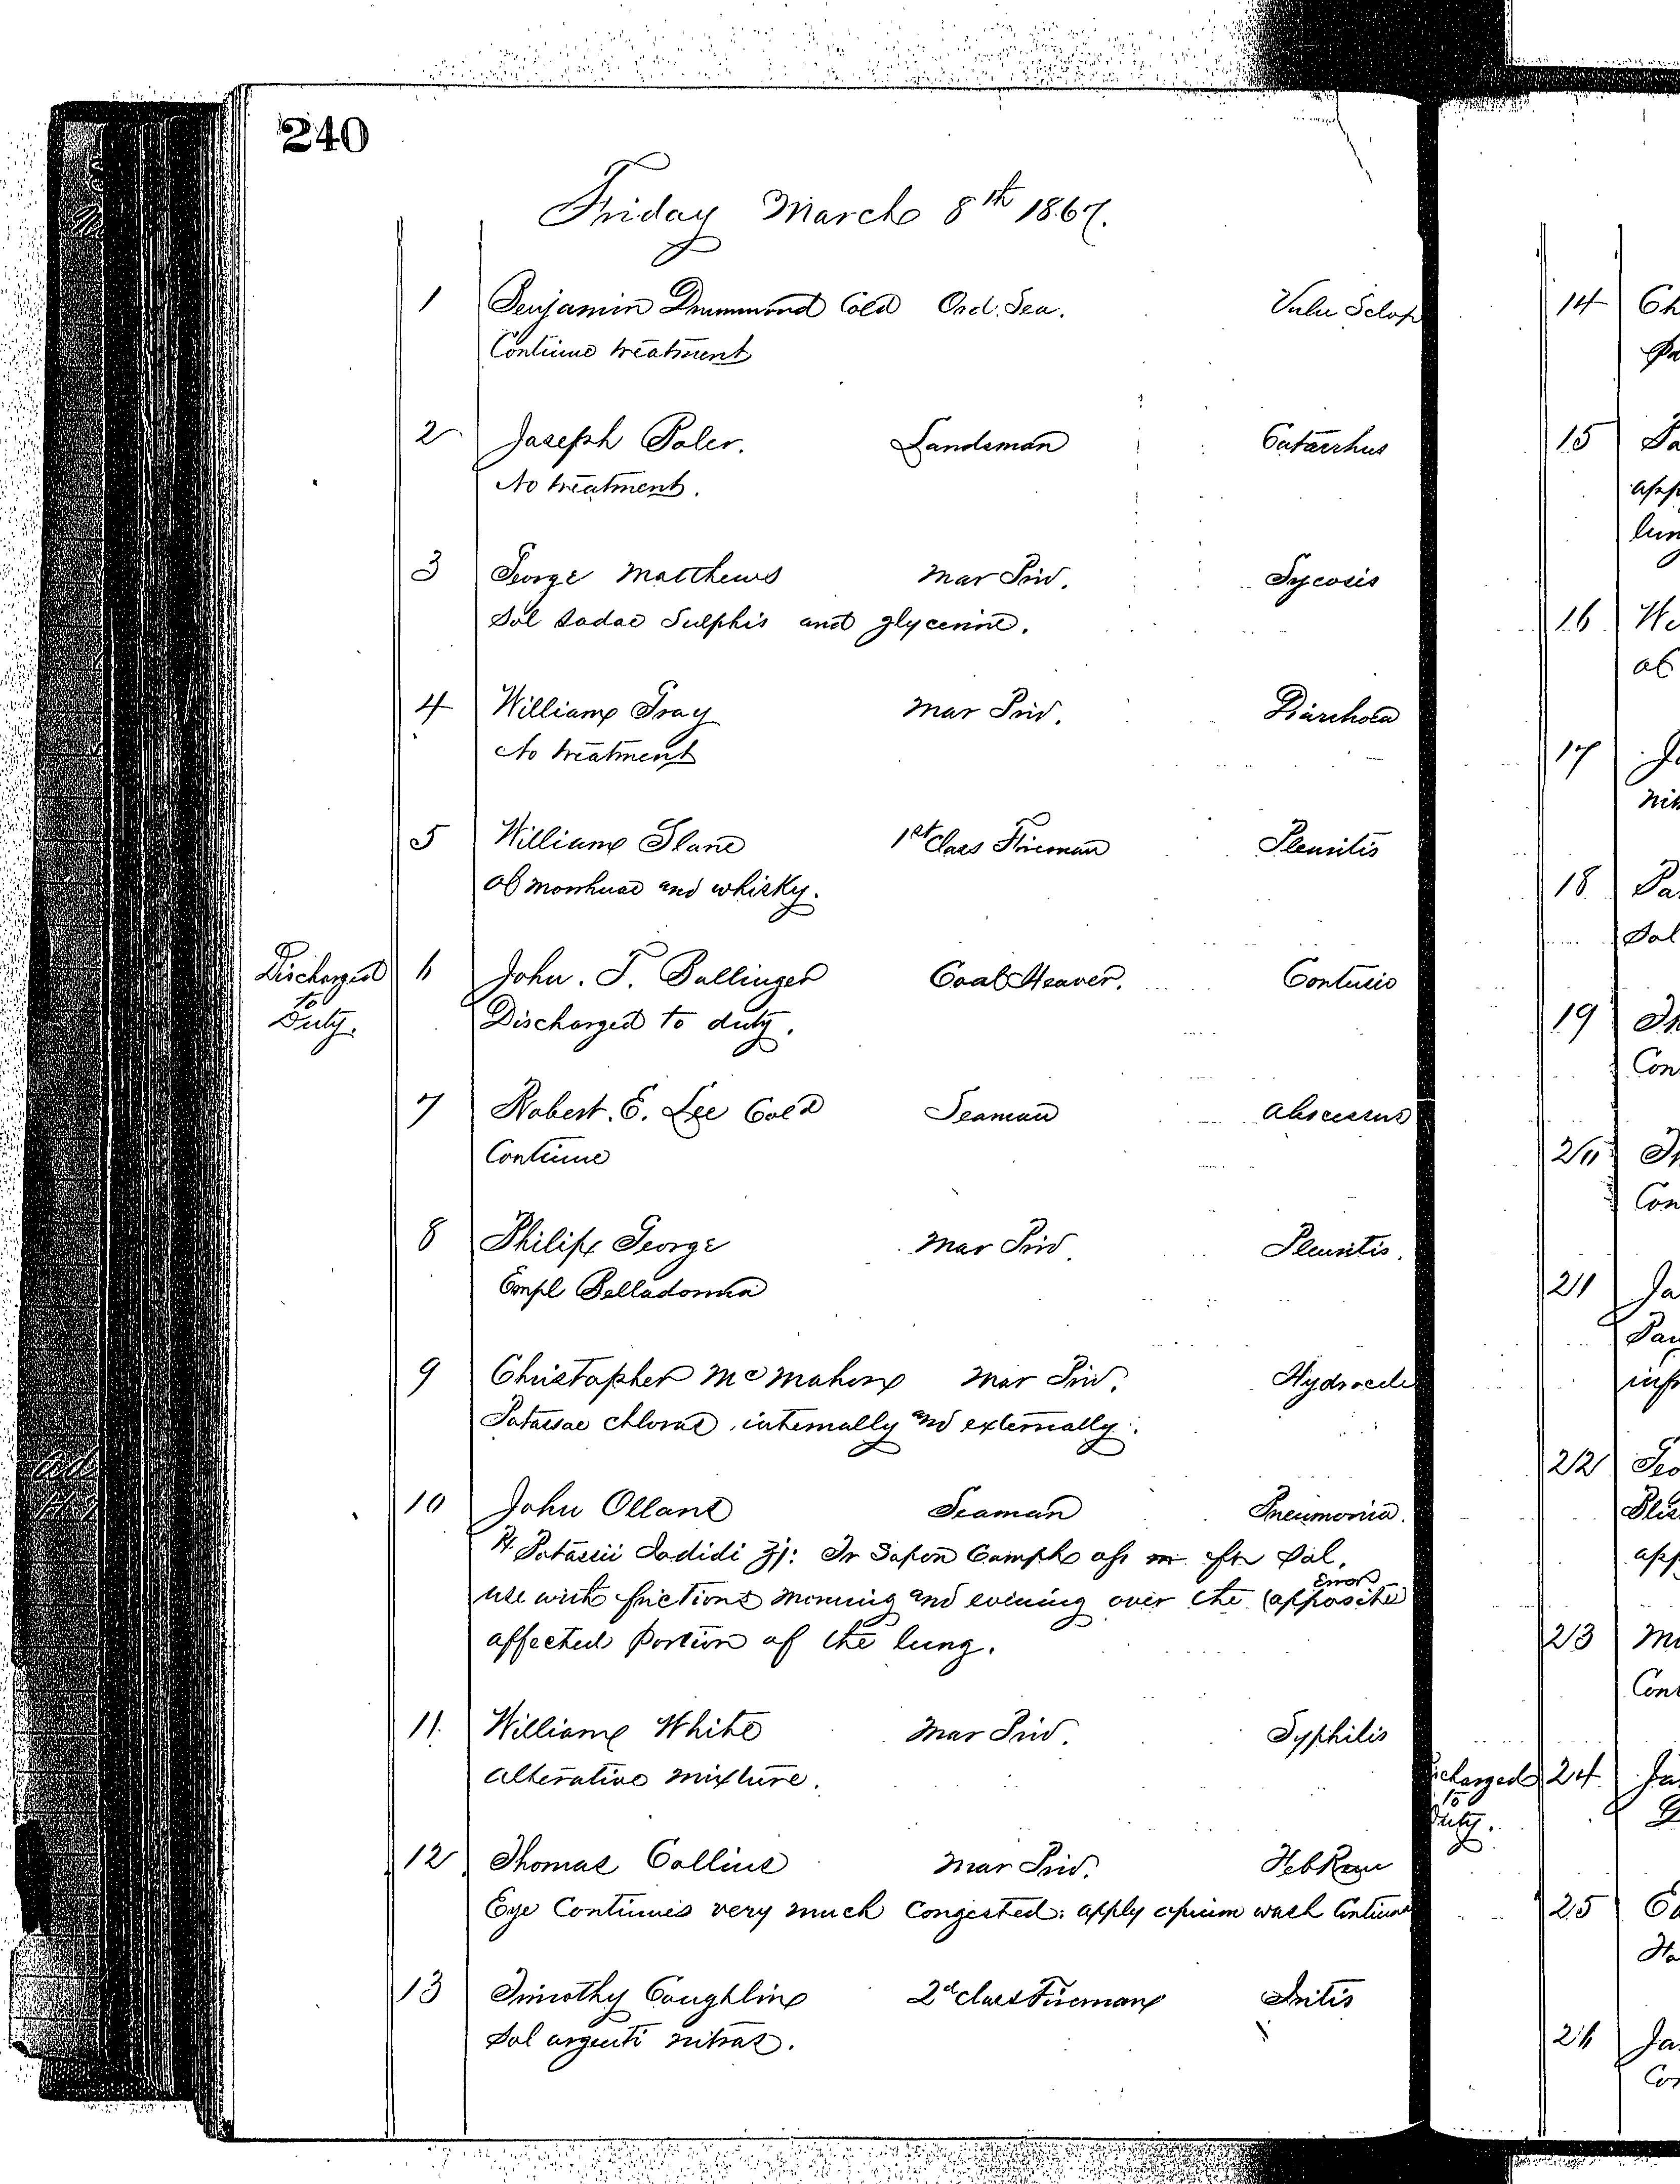 240
Friday March 8th 1867.
1 Benjamin Drummond Cold Ord. Sea. Vuln Sclop
Continue treatment
2 Joseph Poler. Landsman Catarrhus
No treatment.
3 George Matthews Mar Priv. Sycosis
Sol Sodae Sulphis and glycerine.
4 William Gray Mar Priv. Diarrhoea
No treatment
5 William Slane 1st Class Fireman Pleuritis
Ol Morrhuae and whisky.
Discharged to Duty. 6 John. T. Ballinger Coal Heaver. Contusio
Discharged to duty.
7 Robert. E. Lee Cold Seaman Abscessus
Continue
8 Philip George Mar Priv Pleuritis.
Empl Belladonna
9 Christopher McMahon Mar Priv. Hydrocele
Potassae chloras internally and externally.
10 John Olland Seaman Pneumonia.
℞ Potassii Iodidi ʒj: Sapon Camph ft Sol.
Error
use with frictions morning and evening over the (apposite)
affected portion of the lung.
11. William White Mar Priv. Syphilis
Alterative mixture.
12 Thomas Collins Mar Priv. Feb Rem
Eye Continues very much Congested: apply opium wash Continue
13 Timothy Coughlin 2d class Fireman Iritis
Sol argenti nitras.
14 Ch
15
app
lun
16 We
ol
17 Ja
nit
18 Pa
Sol
19
Con
20
Con
21 Ja
Pau
inf
22 Geo
Blis
app
23
Cont
charged to Duty. 24 Ja
25
26 Ja
Con